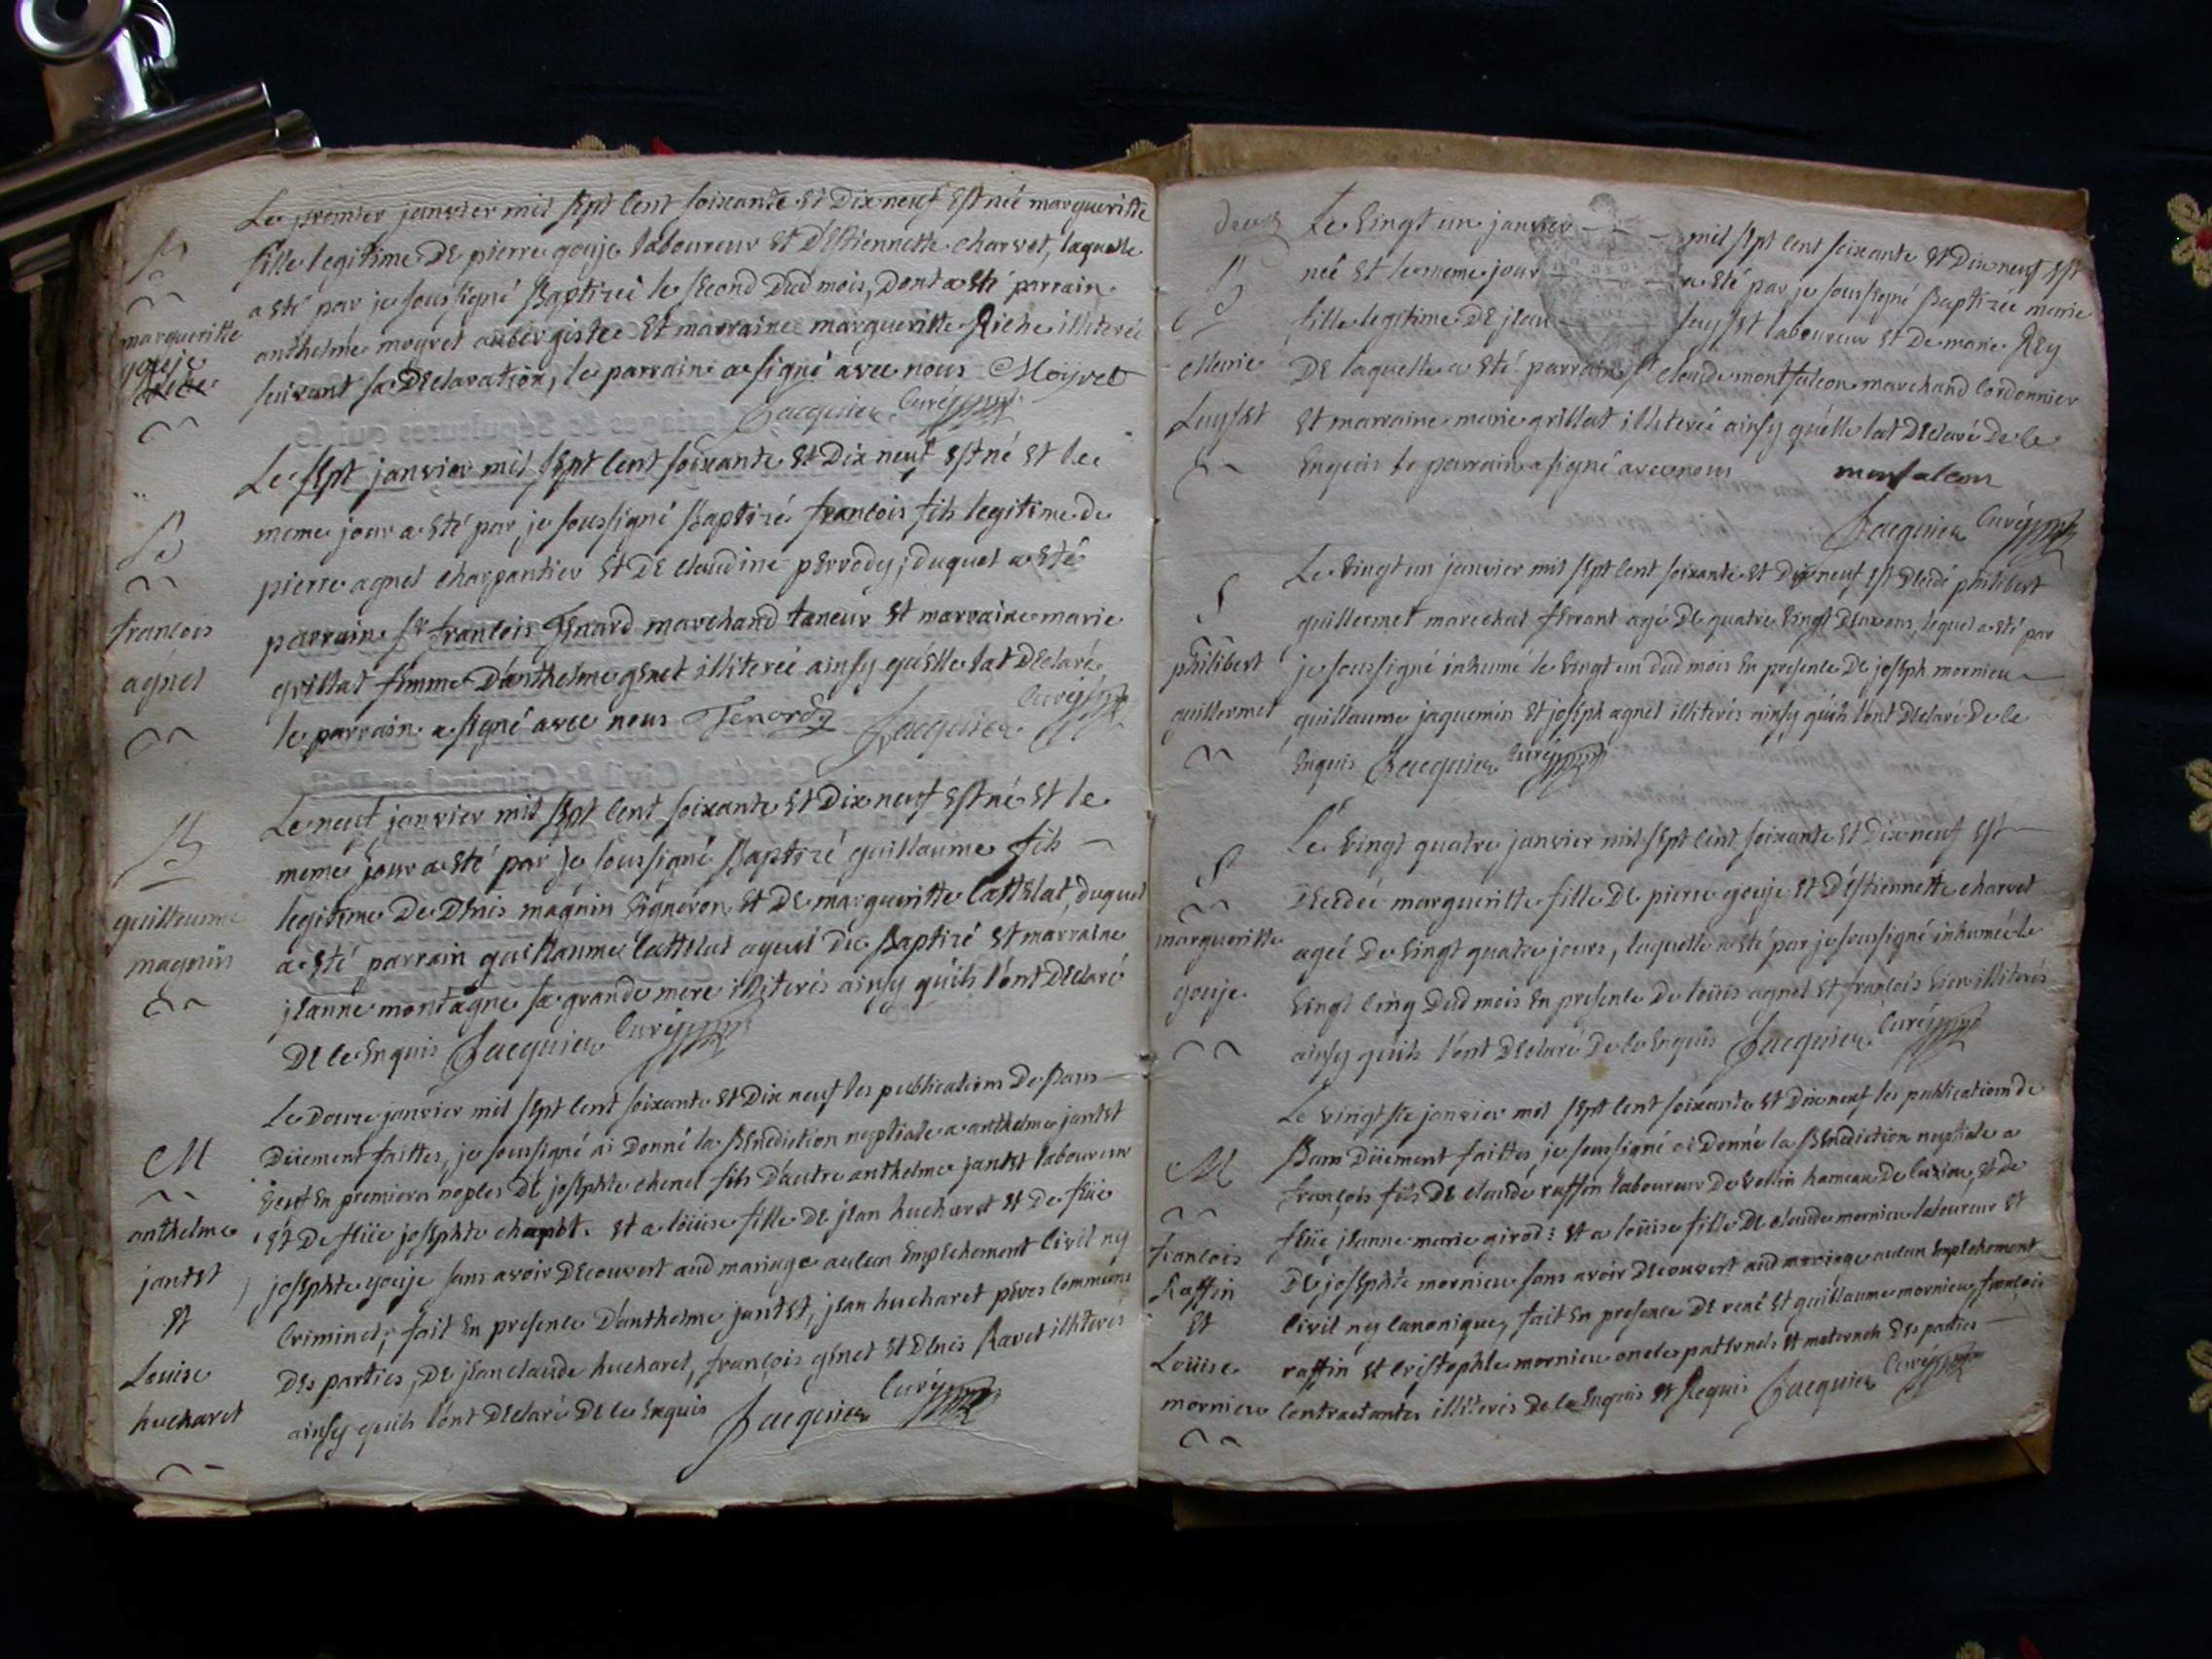 B
margueritte
gouje
Le premier janvier mil sept cent soixante et dix neuf est née margueritte
fille legitime de pierre gouje laboureur et d'Estiennette charvet, laquelle
a esté par je soussigné Baptizeé le second dud mois, dont a esté parrain
anthelme moyret aubergiste et marraine margueritte Riche illitereé
suivant sa declaration, le parrain a signé avec nous Moyret
Jacquier Curé
B
francois
agnel
Le sept janvier mil sept cent soixante et dix neuf est né et le
meme jour a esté par je soussigné Baptizé francois fils legitime de
pierre agnel charpantier et de claudine perrody; duquel a esté
parrain sr francois Tenard marchand taneur et marraine marie
grillat femme d'anthelme genet illitereé ainsy qu'elle lat declaré
le parrain a signé avec nous Jacquier Curé
B
guillaume
magnin
Le neuf janvier mil sept cent soixante et dix neuf est né et le
meme jour a esté par je soussigné Baptizé guillaume fils
legitime de Denis magnin vigneron et de margueritte cattelat, duquel
a esté parrain guillaume cattelat ayeul du Baptizé et marraine
jeanne montagne sa grande mere illiterés ainsy quils l'ont declaré
de ce enquis Jacquier Curé
M
anthelme
jantet
et
Louise
hucharet
Le douze janvier mil sept cent soixante et dix neuf les publications de Bans
düement faittes, je soussigné ai donné la Benediction nuptiale a anthelme jantet
veuf en premieres noples de josephte chenet fils d'autre anthelme jantet laboureur
et de feüe josephte chapot. et a loüise fille de jean hucharet et de feüe
josephte gouje sans avoir decouvert aud mariage aucun empechement civil ny
criminel; fait en presence d'anthelme jantet, jean hucharet peres communs
des parties, de jean claude hucharet, françois genet et denis Ravet illiterés
ainsy quils l'ont declaré de ce enquis Jacquier Curé
deux
B
Marie
Luyset
Le vingt un janvier mil sept cent soixante et dix neuf est
neé et le meme jour a esté par je soussigné Baptizée marie
fille legitime de jean luyset laboureur et de marie Rey
de laquelle a esté parrain sr claude montfalcon marchand cordonnier
et marraine marie grillat illitereé ainsy qu'elle lat declaré de ce
enquis le parrain a signé avec nous monfalcon
Jacquier Curé
S
philibert
guillermet
Le vingt un janvier mil sept cent soixante et dix neuf est decédé philibert
guillermet marechal ferrant agé de quatre vingt deux ans, lequel a esté par
je soussigné inhumé le vingt un dud mois en presence de joseph mornieu
guillaume jaquemin et joseph agnel illiterés ainsy quils l'ont declaré de ce
enquis Jacquier Curé
S
margueritte
gouje
Le vingt quatre janvier mil sept cent soixante et dix neuf est
decedée margueritte fille de pierre gouje et d'Estiennette charvet
ageé de vingt quatre jours, laquelle a esté par je soussigné inhumée le
vingt cinq dud mois en presence de loüis agnel et francois illiterés
ainsy quils l'ont declaré de ce enquis Jacquier Curé
M
francois
Raffin
et
Loüise
mornieu
Le vingt janvier mil sept cent soixante et dix neuf les publication de
Bans düement faittes, je soussigné ai donné la Benediction nuptiale a
françois fils de claude raffin laboureur de vollin hameau de et de
feüe jeanne marie girod: et a loüise fille de claude mornieu laboureur et
de josephte mornieu sans avoir decouvert aud mariage aucun empechement
civil ny canonique, fait en presence de rené et guillaume mornieu francois
raffin et cristophle mornieu oncles paternels et maternels des parties
contractantes illiterés de ce enquis et Requis Jacquier Curé